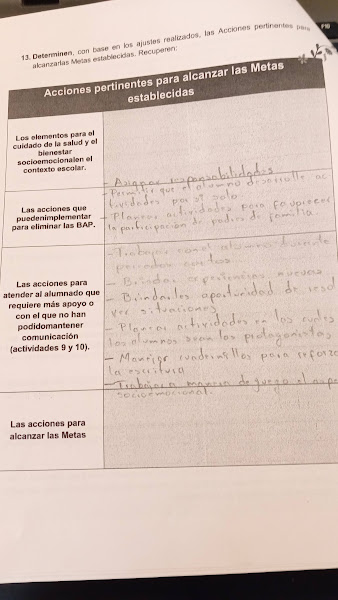 F10
13. Determinen, con base en los ajustes realizados, las Acciones pertinentes para
alcanzarlas Metas establecidas. Recuperen:
Acciones pertinentes para alcanzar las Metas
establecidas
Los elementos para el
cuidado de la salud y el
bienestar
socioemocionalen el
contexto escolar.
- Asignar responsabilidades
Las acciones que
puedenimplementar
para eliminar las BAP.
- Permitir que el alumno desarrolle ac
tividades por sí solo
- Planear actividades para favorecer
la participación de padres de familia
Las acciones para
atender al alumnado que
requiere más apoyo o
con el que no han
podidomantener
comunicación
(actividades 9 y 10).
- Trabajar con el alumno durante
periodos cortos
- Brindar experiencias nuevas
- Brindarles oportunidad de resol
ver situaciones
- Planear actividades en las cuales
los alumnos sean los protagonistas
- Manejar cuadernillos para reforzar
la escritura
- Trabajar a manera de juego el
socioemocional.
Las acciones para
alcanzar las Metas